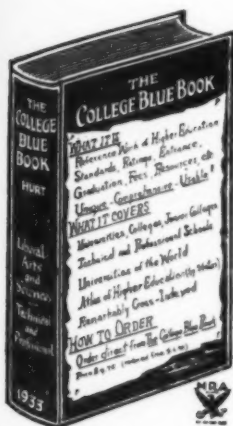 THE
COLLEGE
BLUE
BOOK
HURT
Liberal
Arts
and
Sciences
Technical
and
Professional
1933
THE
COLLEGE BLUE BOOK
WHAT IT IS
Reference Work of Higher Education
Standards, Ratings, Entrance,
Graduation, Fees, Resources, etc
Unique - Comprehensive - Usable
WHAT IT COVERS
Universities, Colleges, Junior Colleges
Technical and Professional Schools
Universities of the World
Atlas of Higher Education (by states)
Remarkably Cross-Indexed
HOW TO ORDER
Order direct from The College Blue Book
NRA